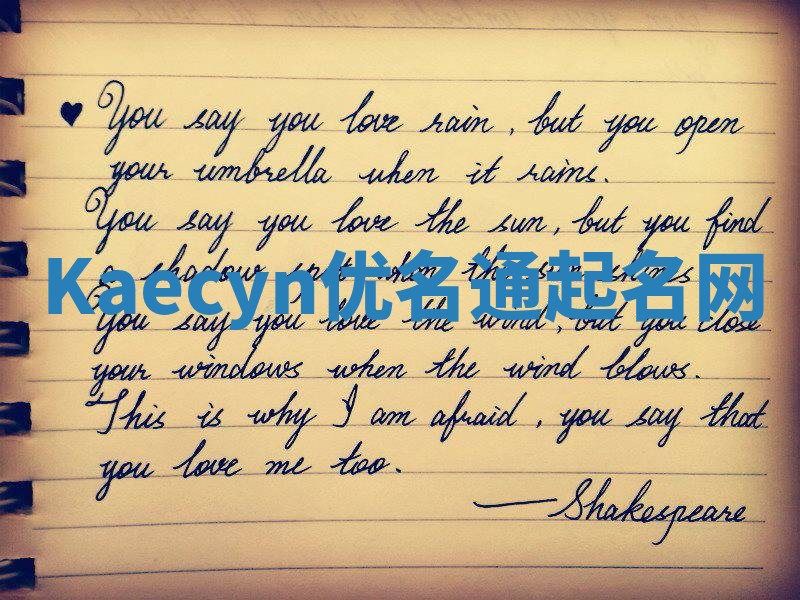 ♥ You say you love rain, but you open
your umbrella when it rains.
You say you love the sun, but you find
a shadow spot when the sun shines
Kaecyn优名通起名网
You say you love the wind, but you close
your windows when the wind blows.
This is why I am afraid, you say that
you love me too.
—Shakespeare